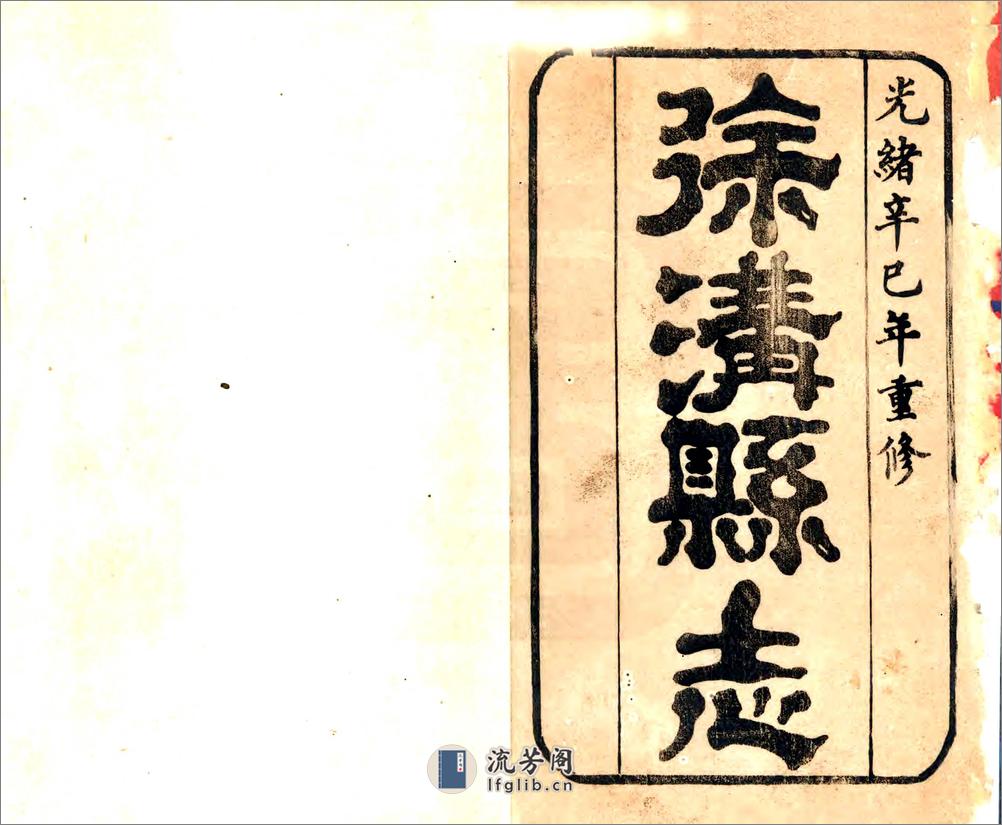 光緒辛巳年重修
徐溝縣志
流芳阁
lfglib.cn